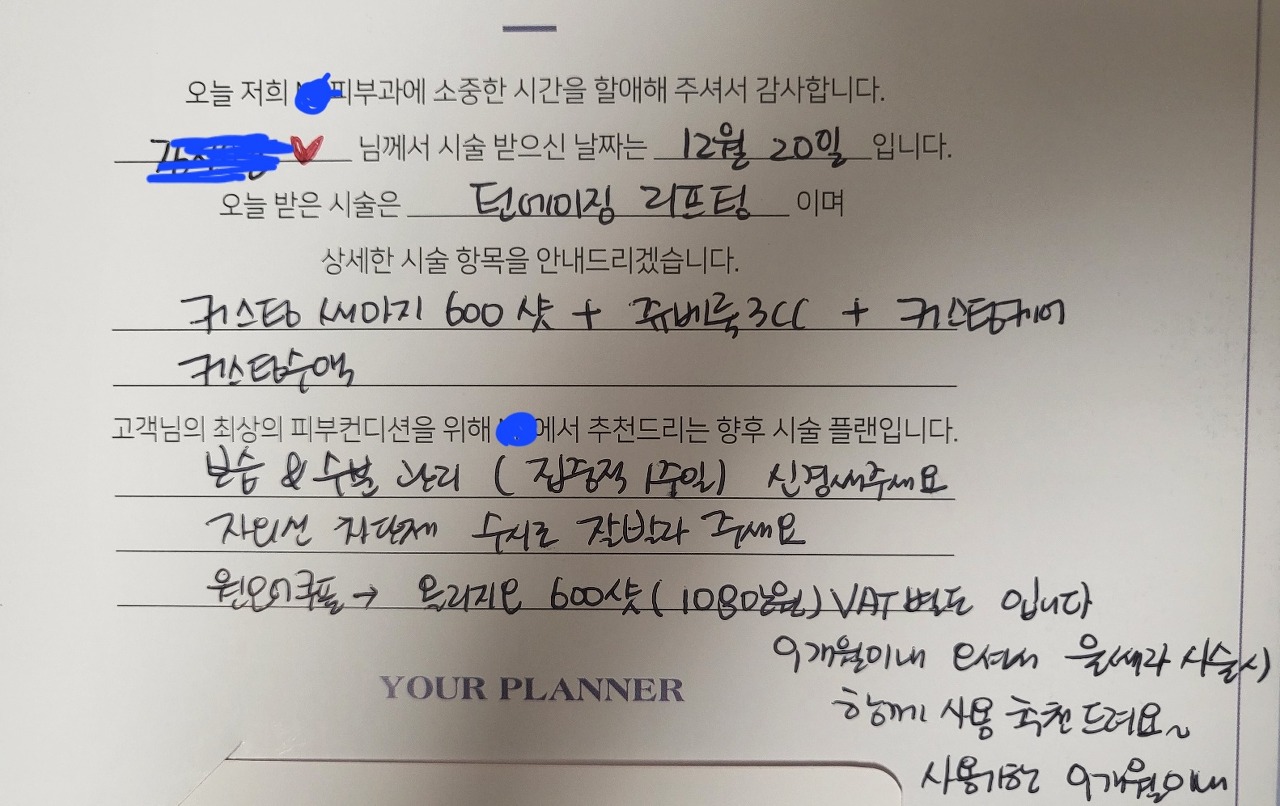 오늘 저희 피부과에 소중한 시간을 할애해 주셔서 감사합니다.
님께서 시술 받으신 날짜는 12월 20일 입니다.
오늘 받은 시술은 턴에이징 리프팅 이며
상세한 시술 항목을 안내드리겠습니다.
커스텀 써마지 600샷 + 쥬베룩3CC + 커스텀케어
커스텀수액
고객님의 최상의 피부컨디션을 위해 에서 추천드리는 향후 시술 플랜입니다.
보습 & 수분 관리 (집중적 1주일) 신경써주세요
자외선 차단제 수시로 잘발라 주세요
원오어쿠폰 → 올리지오 600샷 (108만원) VAT 별도 입니다
9개월이내 오셔서 울쎄라 시술시
함께 사용 추천드려요~
사용기한 9개월이내
YOUR PLANNER